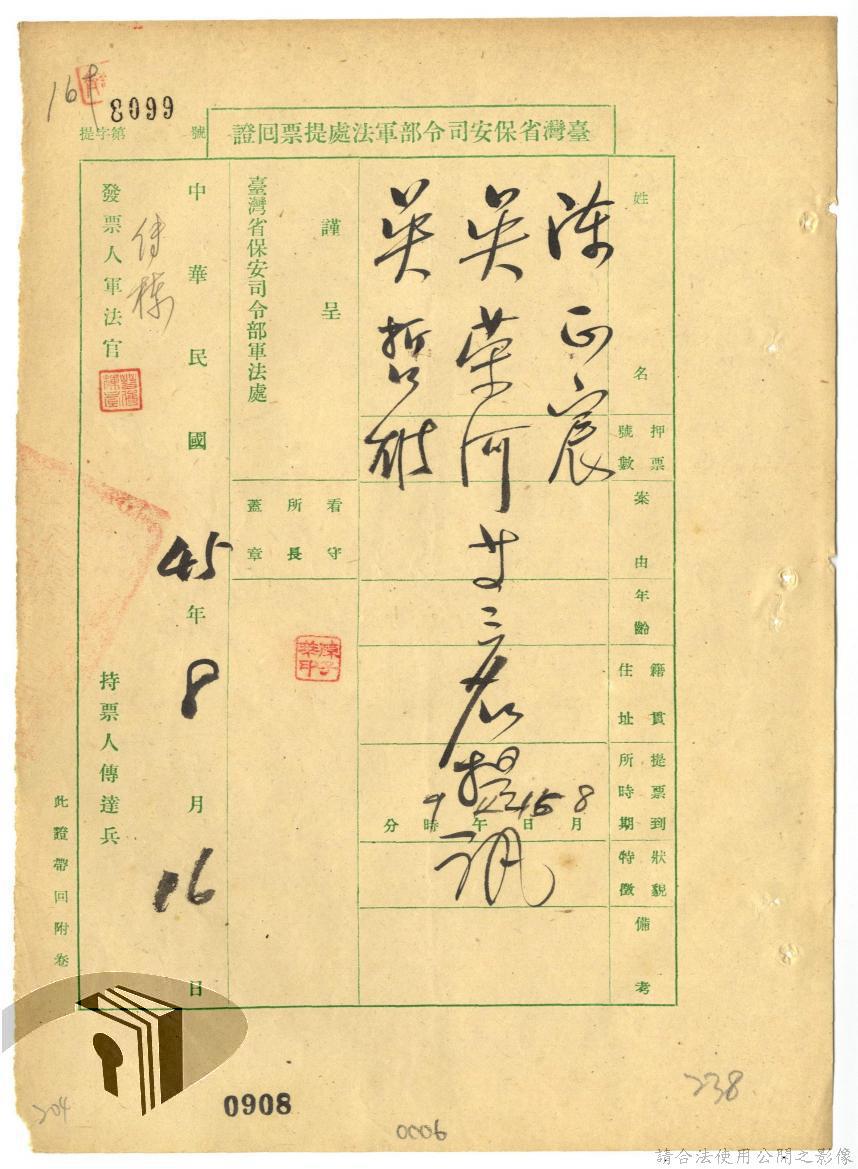 臺灣省保安司令部軍法處提票回證
提字第 號
姓名
押票號數
案由
年齡
籍貫住址
提票到所時期
狀貌特徵
備考
陳正宸
吳榮河 廿三名提訊
吳哲雄
8月15日午9時分
謹呈
臺灣省保安司令部軍法處
看守所長蓋章
中華民國45年8月16日
發票人軍法官
持票人傳達兵
此證帶回附卷
0908
0006
204
238
請合法使用公開之影像